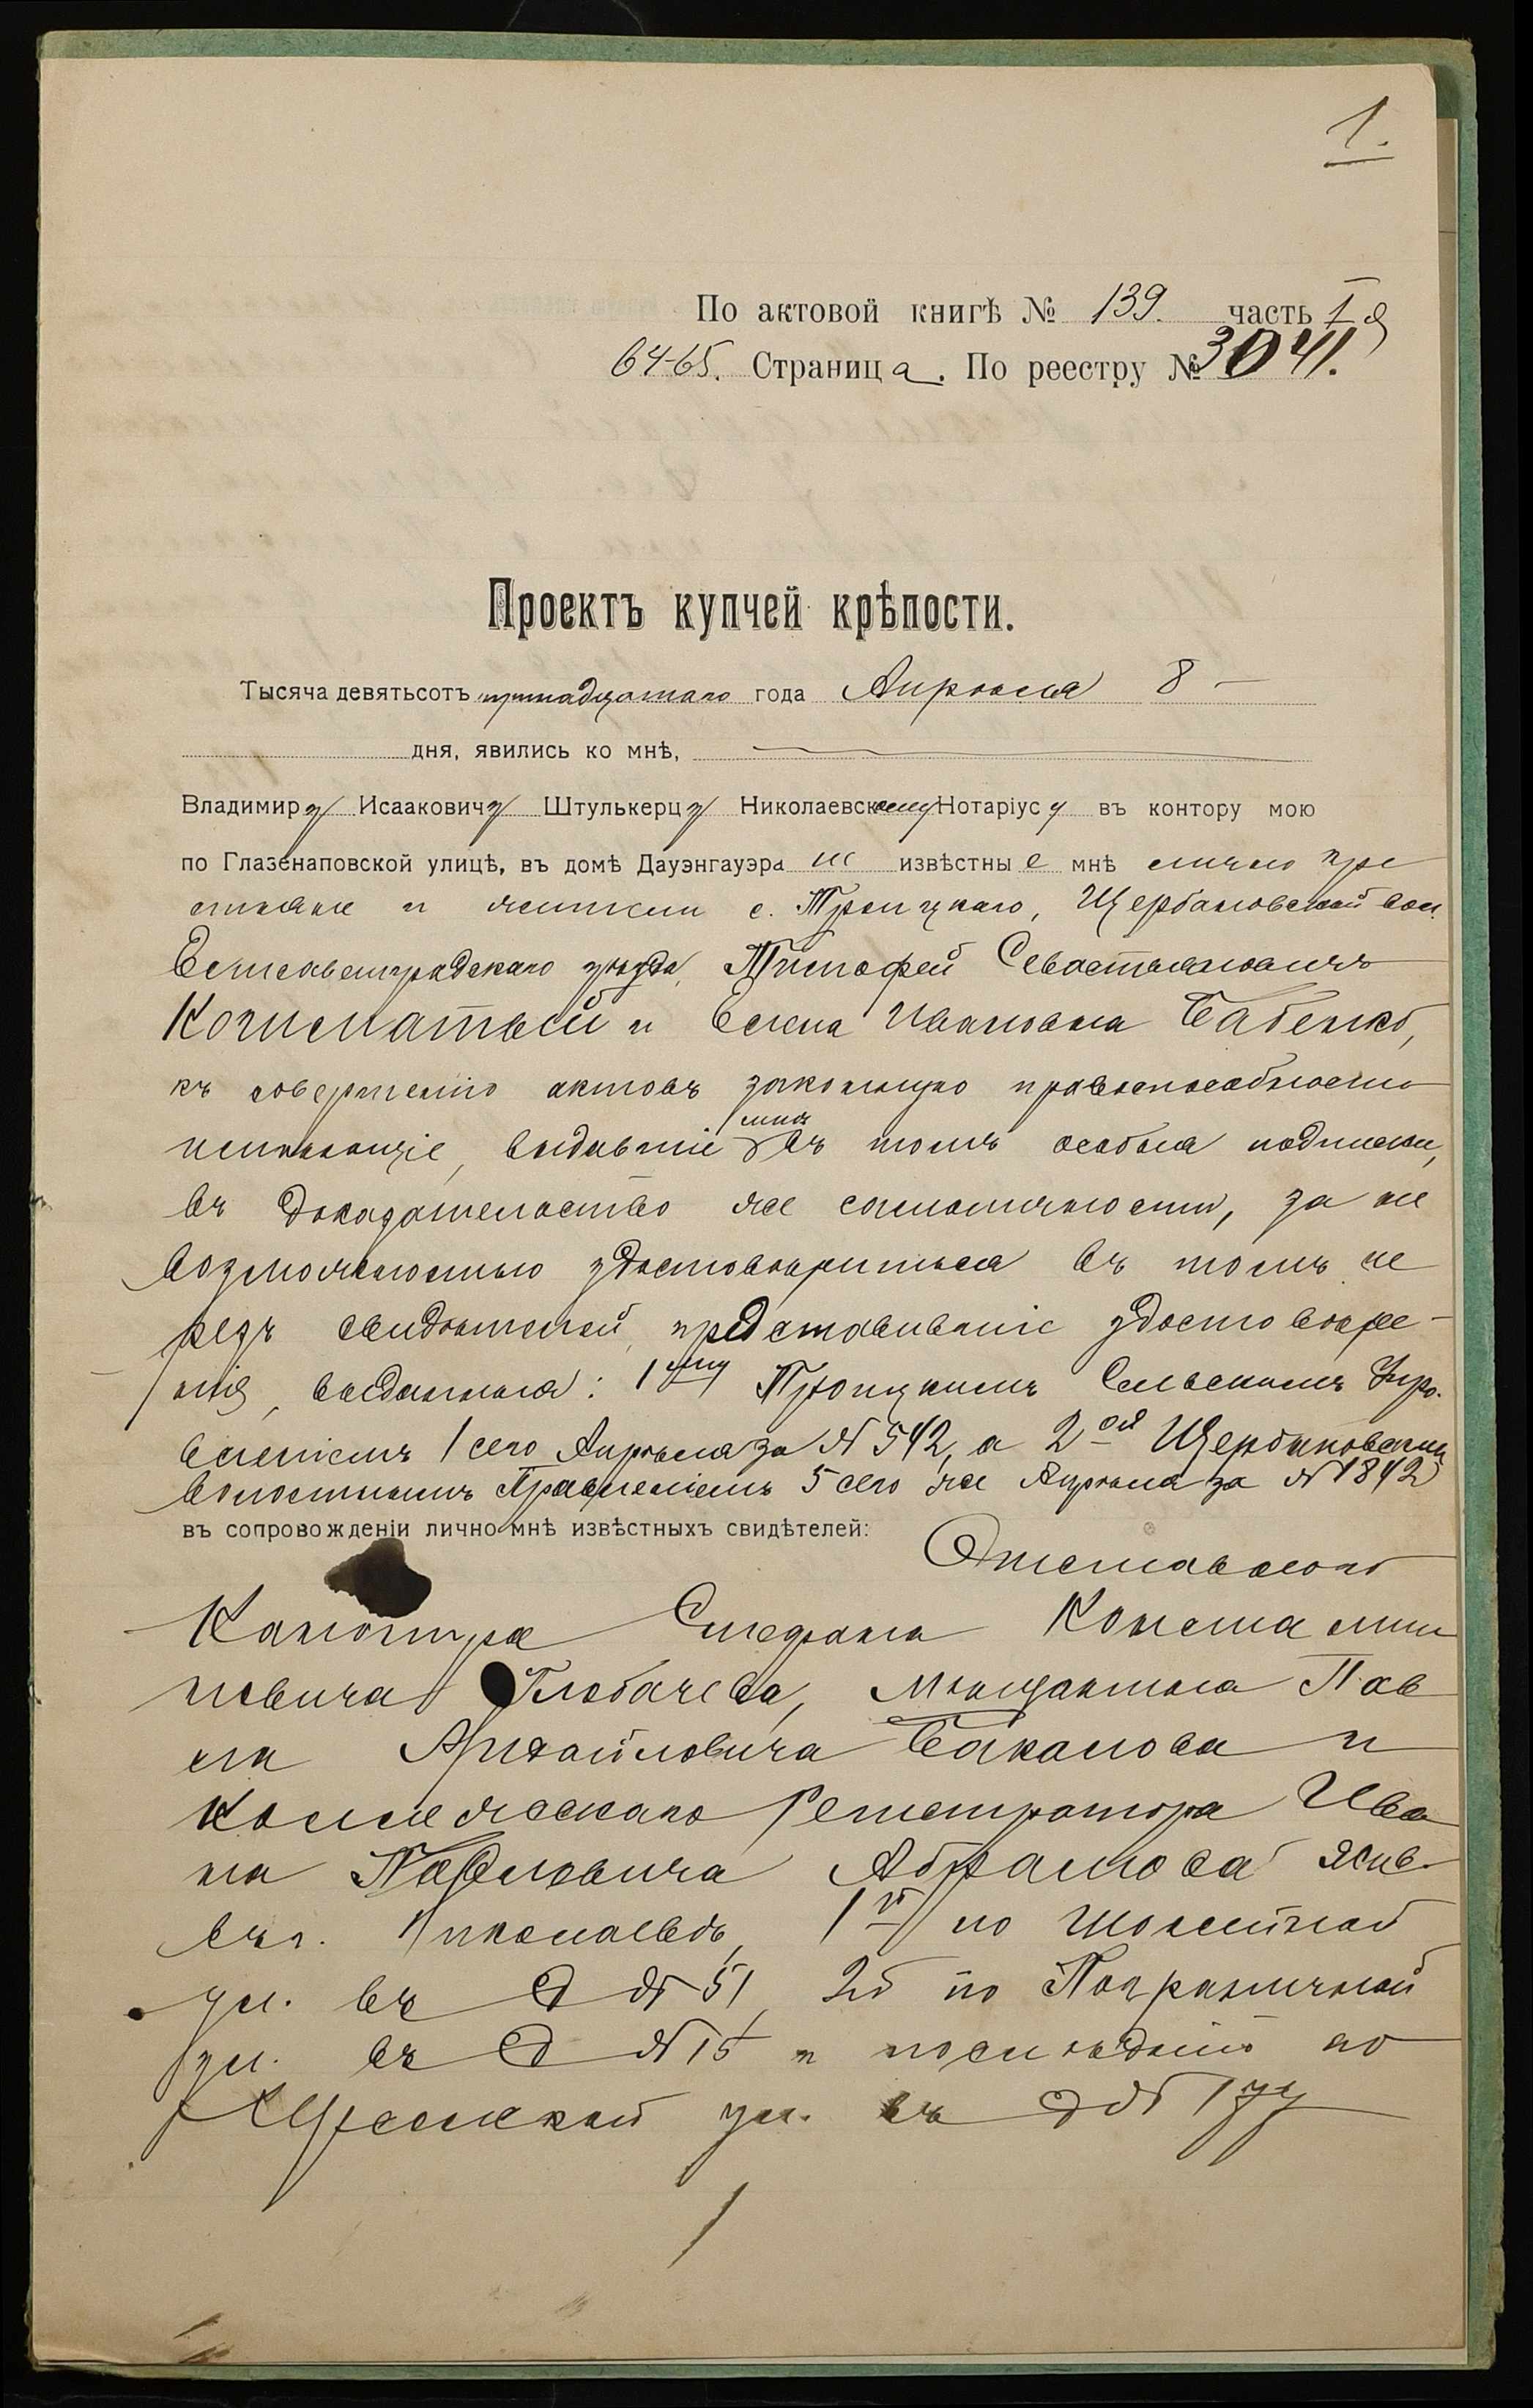 1.
По актовой книгѣ № 139. часть I я
64-65. Страница. По реестру № 3041.
Проектъ купчей крѣпости.
Тысяча девятьсотъ тринадцатаго года Апрѣля 8 —
дня, явились ко мнѣ,
Владимиру Исааковичу Штулькерцу Николаевскому Нотаріусу въ контору мою
по Глазенаповской улицѣ, въ домѣ Дауэнгауэра не извѣстные мнѣ лично кре
стьяне и жители с. Троицкаго, Щербановской вол.
Елисаветградскаго уѣзда, Тимофей Севастьяновичъ
Кочиматый и Елена Ивановна Бабенко,
къ совершенію актовъ законную правоспособность
имѣющіе, выдавшіе мнѣ въ томъ особыя подписки,
въ доказательство же самоличности, за не
возможностью удостовѣриться въ томъ че
резъ свидѣтелей, представившіе удостовѣре-
нія, выданныя: 1му Троицкимъ Сельскимъ Упра-
вленіемъ 1 сего Апрѣля за № 542, а 2ой Щербановскимъ
Волостнымъ Правленіемъ 5 сего же Апрѣля за № 1842
въ сопровожденіи лично мнѣ извѣстныхъ свидѣтелей:
Отставного
Канонира Стефана Константи
новича Глобачева, мѣщанина Пав
ла Михайловича Баканова и
Коллежскаго Регистратора Ива
на Павловича Абрамова жив.
въ г. Николаевѣ, 1й по
ул. въ д № 51, 2й по Пограничной
ул. въ д № 15 и послѣдній по
ул. въ д №